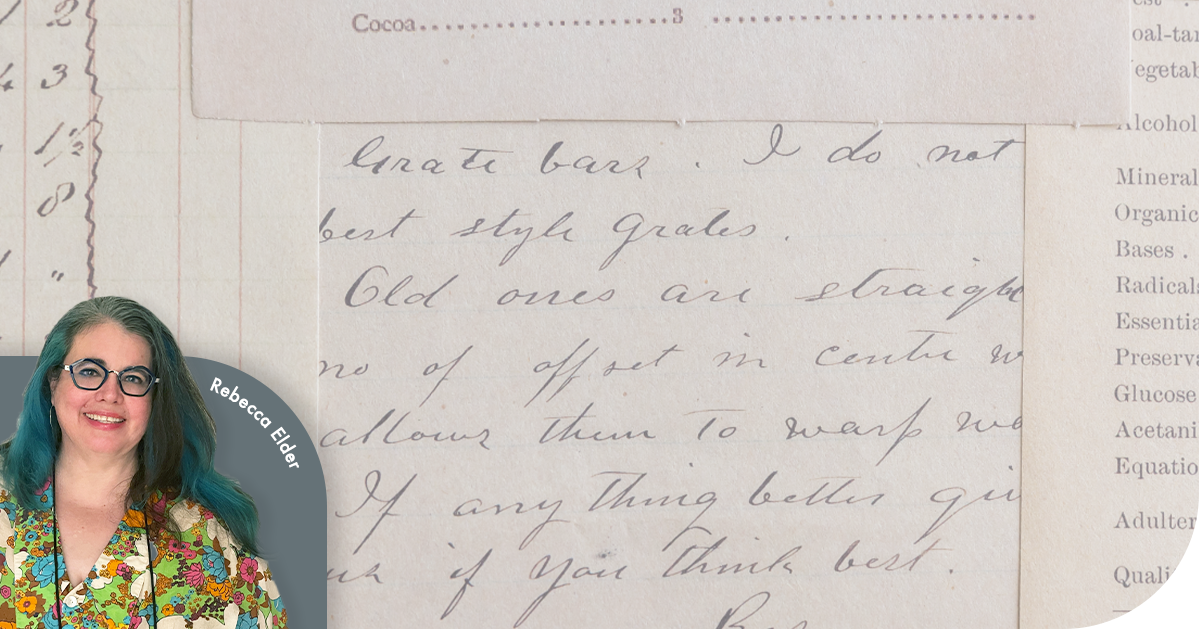 Cocoa..........................3 ....................................
1 2
4 3
1½
8
"
Grate bars. I do not
best style grates.
Old ones are straight
no of offset in centre w
allows them to warp wo
If any thing better giv
us if you think best.
oal-tar
egetab
Alcohol
Mineral
Organic
Bases .
Radicals
Essentia
Preserva
Glucose
Acetani
Equatio
Adulter
Quali
Rebecca Elder